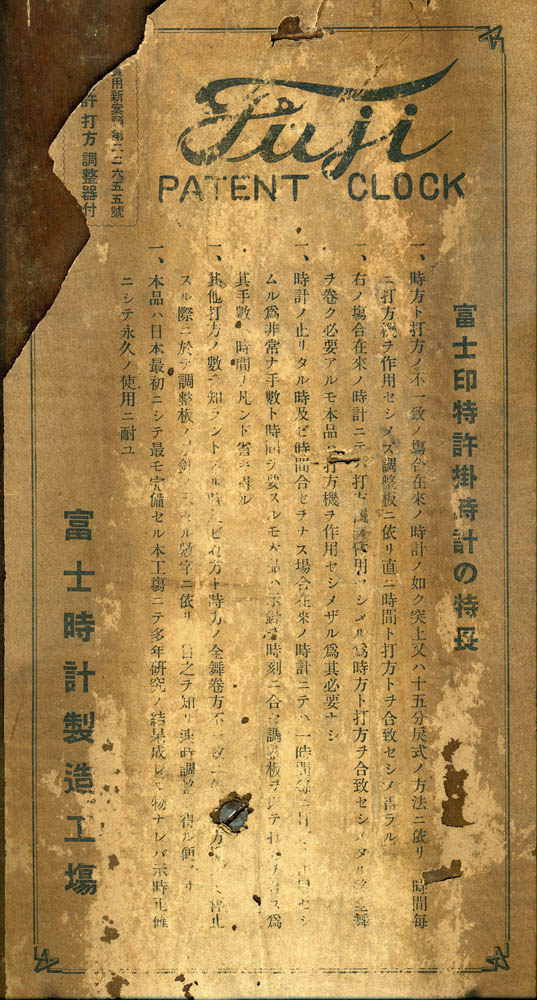 Fuji
PATENT CLOCK
用新案 第二二六五五號
許打方調整器付
富士印特許掛時計の特長
一、時方ト打方ノ不一致ノ塲合在來ノ時計ノ如ク突上又ハ十五分戻式ノ方法ニ依リ 時間每
ニ打方機ヲ作用セシメズ調整板ニ依リ直ニ時間ト打方トヲ合致セシメ得ラル
一、右ノ塲合在來ノ時計ニテハ打方 使用 シメル爲時方ト打方ヲ合致セシメタル 全舞
ヲ卷ク必要アルモ本品ハ打方機ヲ作用セシメザル爲其必要ナシ
一、時計ノ止リタル時及ビ時間合セヲナス場合在來ノ時計ニテハ一時間每ニ 打 セシ
ムル爲非常ナ手數ト時間ヲ要スルモ本品ハ示針ヲ時刻ニ合セ調整板ヲ テ打 爲
其手數ト時間ヲ凡ンド省キ得ル
一、其他打方ノ數ヲ知ラントスル時及ビ打方ト時方ノ全舞卷方不一致ニ 方 停止
スル際ニ於テ調整板ノ 數字ニ依リ 之ヲ知リ 調整 得ル便
一、本品ハ日本最初ニシテ最モ完備セル本工塲ニテ多年研究ノ結果成レル物ナレバ示時正確
ニシテ永久ノ使用ニ耐ユ
富士時計製造工塲